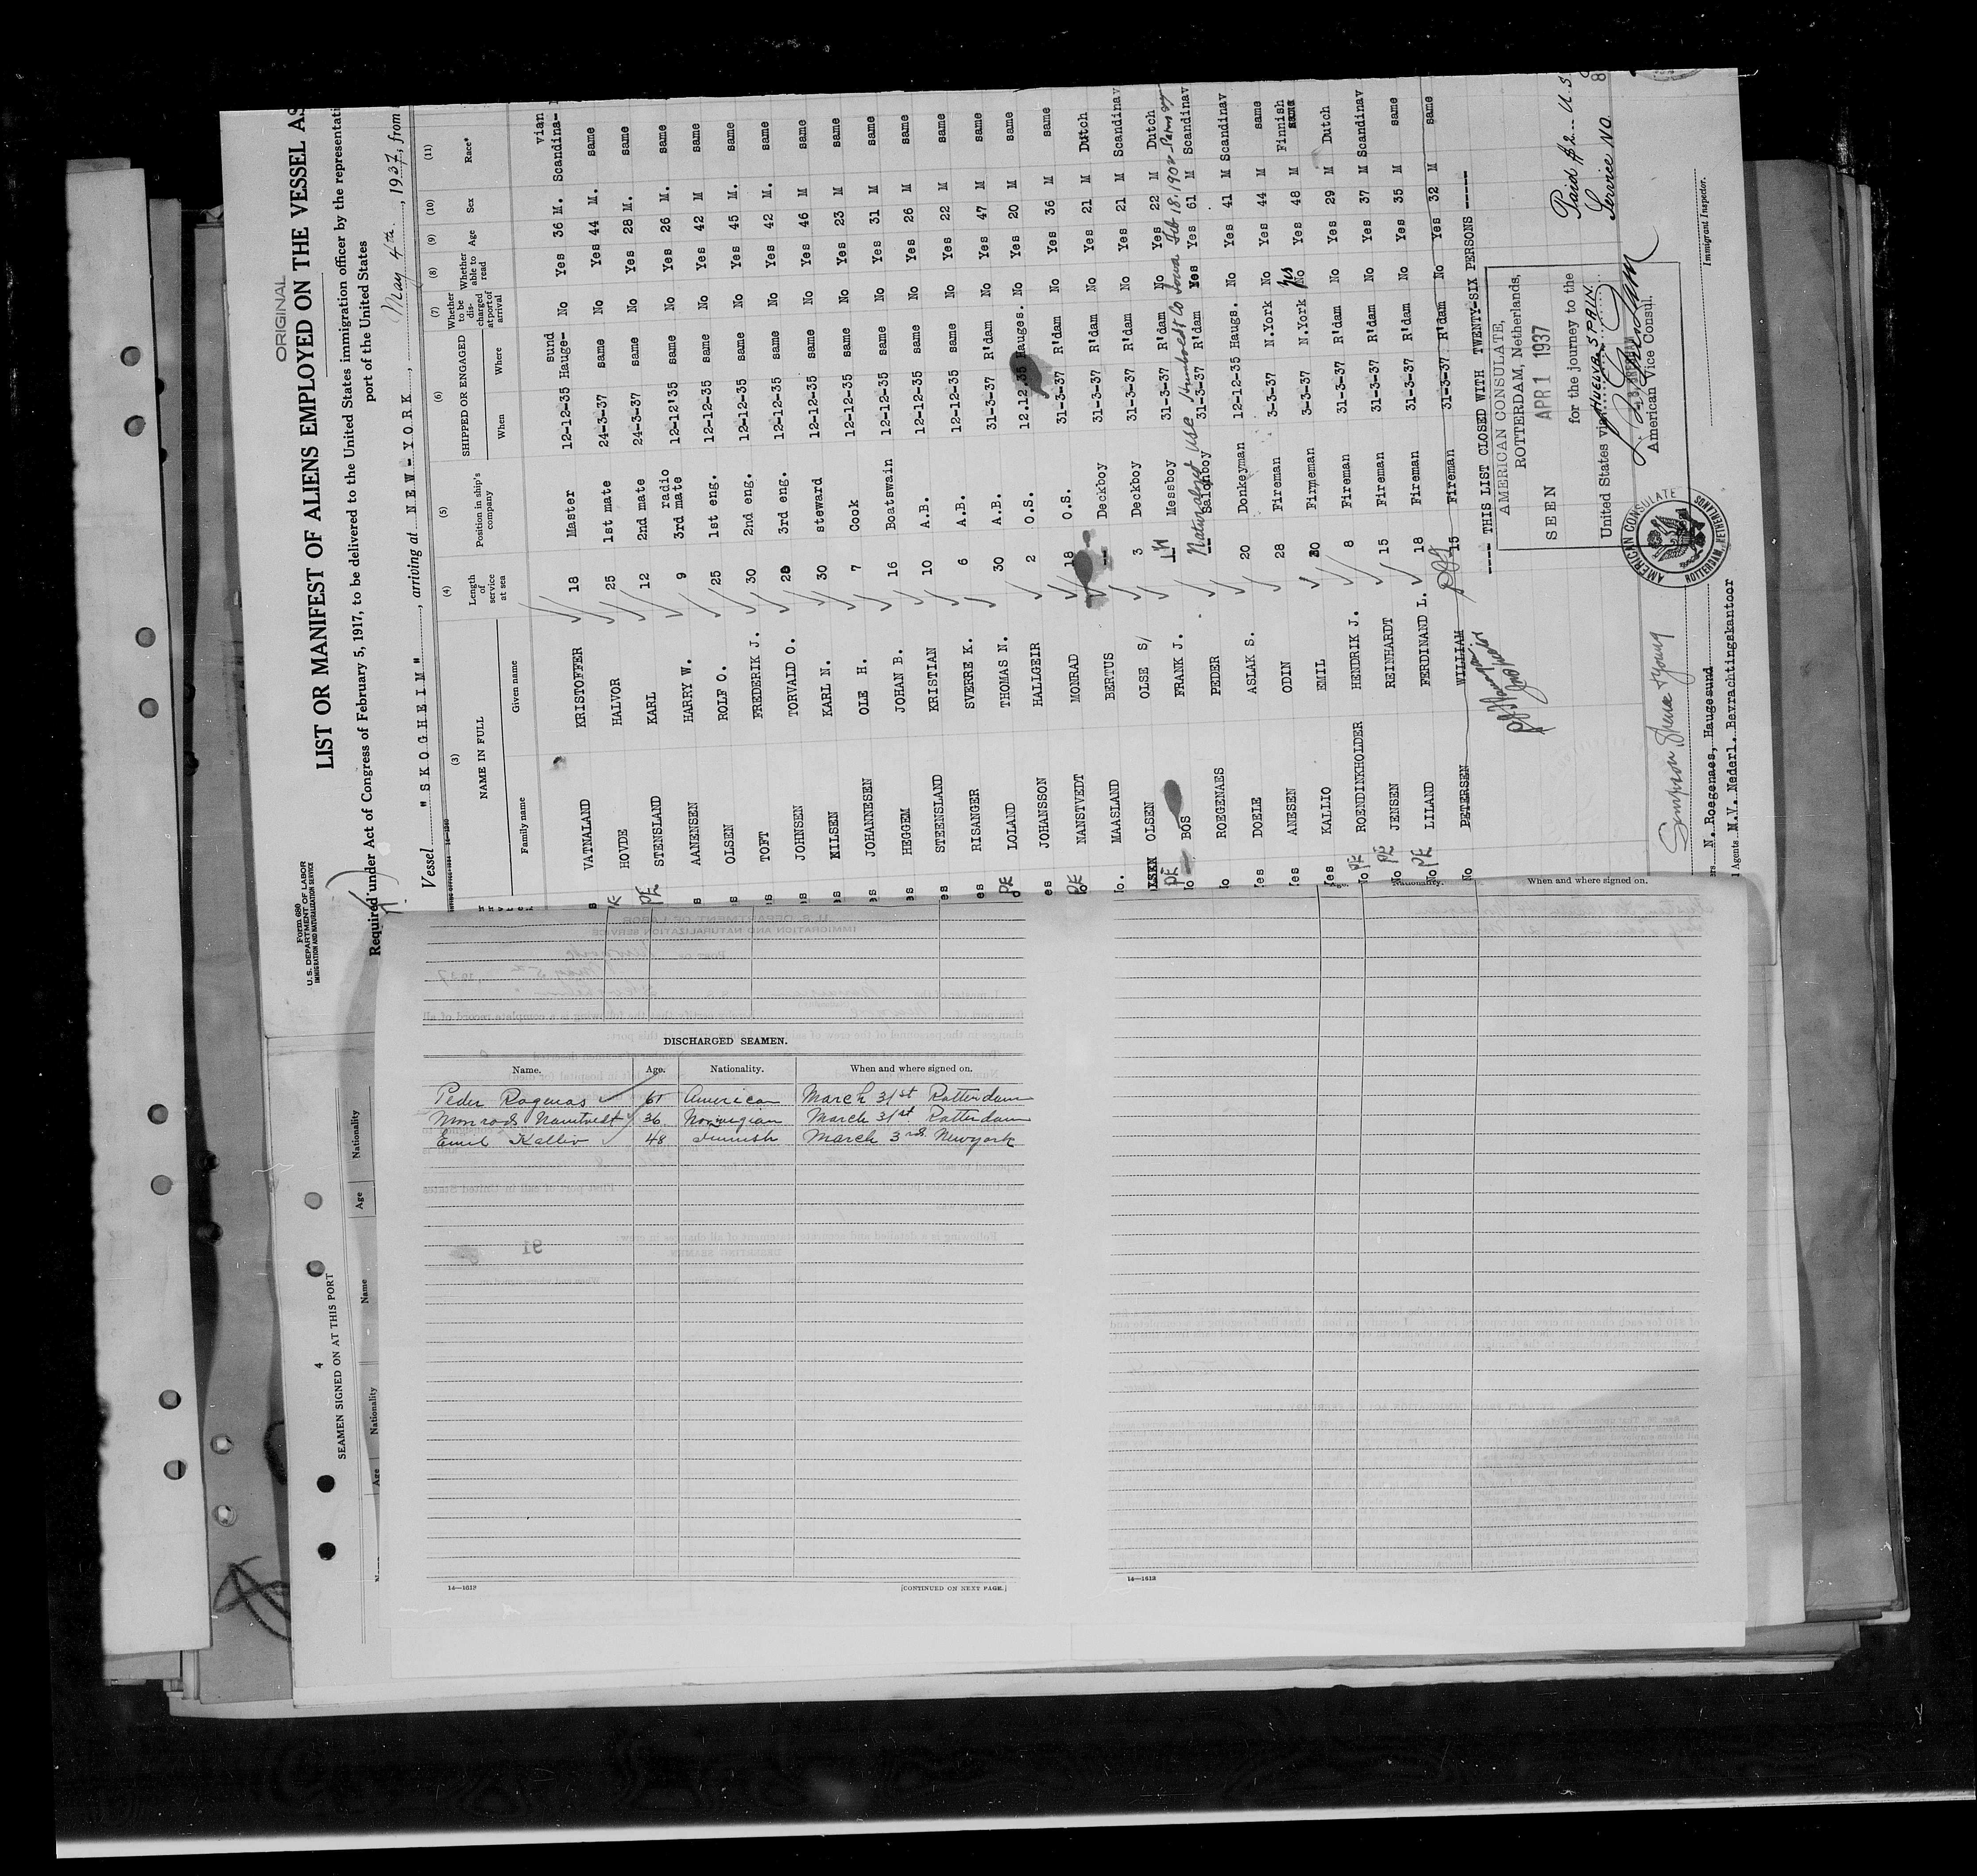 ORIGINAL
Form 680
U.S. DEPARTMENT OF LABOR
IMMIGRATION AND NATURALIZATION SERVICE
LIST OR MANIFEST OF ALIENS EMPLOYED ON THE VESSEL AS
Required under Act of Congress of February 5, 1917, to be delivered to the United States immigration officer by the representati
port of the United States
Vessel "SKOGHEIM", arriving at NEW-YORK, May 4th, 1937, from
(3) (4) (5) (6) (7) (8) (9) (10) (11)
NAME IN FULL Length of service at sea Position in ship's company SHIPPED OR ENGAGED Whether to be discharged at port of arrival Whether able to read Age Sex Race*
Family name Given name When Where
VATNALAND KRISTOFFER 18 Master 12-12-35 Hauge-sund No Yes 36 M. Scandina-vian
HOVDE HALVOR 25 1st mate 24-3-37 same No Yes 44 M. same
STENSLAND KARL 12 2nd mate 24-3-37 same No Yes 28 M. same
AANENSEN HARRY W. 9 radio 3rd mate 12-12'35 same No Yes 26 M. same
OLSEN ROLF O. 25 1st eng. 12-12-35 same No Yes 42 M same
TOFT FREDERIK J. 30 2nd eng. 12-12-35 same No Yes 45 M. same
JOHNSEN TORVALD O. 20 3rd eng. 12-12-35 same No Yes 42 M. same
NILSEN KARL N. 30 steward 12-12-35 same No Yes 46 M same
JOHANNESEN OLE H. 7 Cook 12-12-35 same No Yes 23 M same
HEGGEM JOHAN B. 16 Boatswain 12-12-35 same No Yes 31 M same
STEENSLAND KRISTIAN 10 A.B. 12-12-35 same No Yes 26 M same
RISANGER SVERRE K. 6 A.B. 12-12-35 same No Yes 22 M same
LOLAND THOMAS N. 30 A.B. 31-3-37 R'dam No Yes 47 M same
JOHANSSON HALLGEIR 2 O.S. 12.12.35 Hauges. No Yes 20 M same
NANSTVEDT MONRAD 18 O.S. 31-3-37 R'dam No Yes 36 M same
MAASLAND BERTUS -- Deckboy 31-3-37 R'dam No Yes 21 M Dutch
OLSEN OLSE S/ 3 Deckboy 31-3-37 R'dam No Yes 21 M Scandinav
BOS FRANK J. Messboy 31-3-37 R'dam No Yes 22 M Dutch
ROEGENAES PEDER -- Salonboy 31-3-37 R'dam Yes Yes 61 M Scandinav
DOELE ASLAK S. 20 Donkeyman 12-12-35 Haugs. No Yes 41 M Scandinav
ANESEN ODIN 28 Fireman 3-3-37 N.York No Yes 44 M same
KALLIO EMIL 30 Firmeman 3-3-37 N.York No Yes Yes 48 M Finnish
ROENDINKHOLDER HENDRIK J. 8 Fireman 31-3-37 R'dam No Yes 29 M Dutch
JENSEN REINHARDT 15 Fireman 31-3-37 R'dam No Yes 37 M Scandinav
LILAND FERDINAND L. 18 Fireman 31-3-37 R'dam No Yes 35 M same
PETERSEN WILLIAM 15 Fireman 31-3-37 R'dam No Yes 32 M same
---- THIS LIST CLOSED WITH TWENTY-SIX PERSONS -----
AMERICAN CONSULATE,
ROTTERDAM, Netherlands,
SEEN APR 1 1937
for the journey to the
United States via HUELVA SPAIN
American Vice Consul.
AMERICAN CONSULATE
ROTTERDAM, NETHERLANDS
Paid $2 U.S.
Service NO. 8
Simpson, Spence & Young
Immigrant Inspector.
N. Roegenaes, Haugesund
Agents M.V. Nederl. Bevrachtingskantoor
4
SEAMEN SIGNED ON AT THIS PORT
Name Age Nationality
DISCHARGED SEAMEN.
Name. Age. Nationality. When and where signed on.
Peder Rogenas 61 American March 31st Rotterdam
Monrads Namtvedt 36 Norwegian March 31st Rotterdam
Emil Kallio 48 Finnish March 3rd. Newyork
14—1612
[CONTINUED ON NEXT PAGE.]
Age. Nationality. When and where signed on.
14—1612